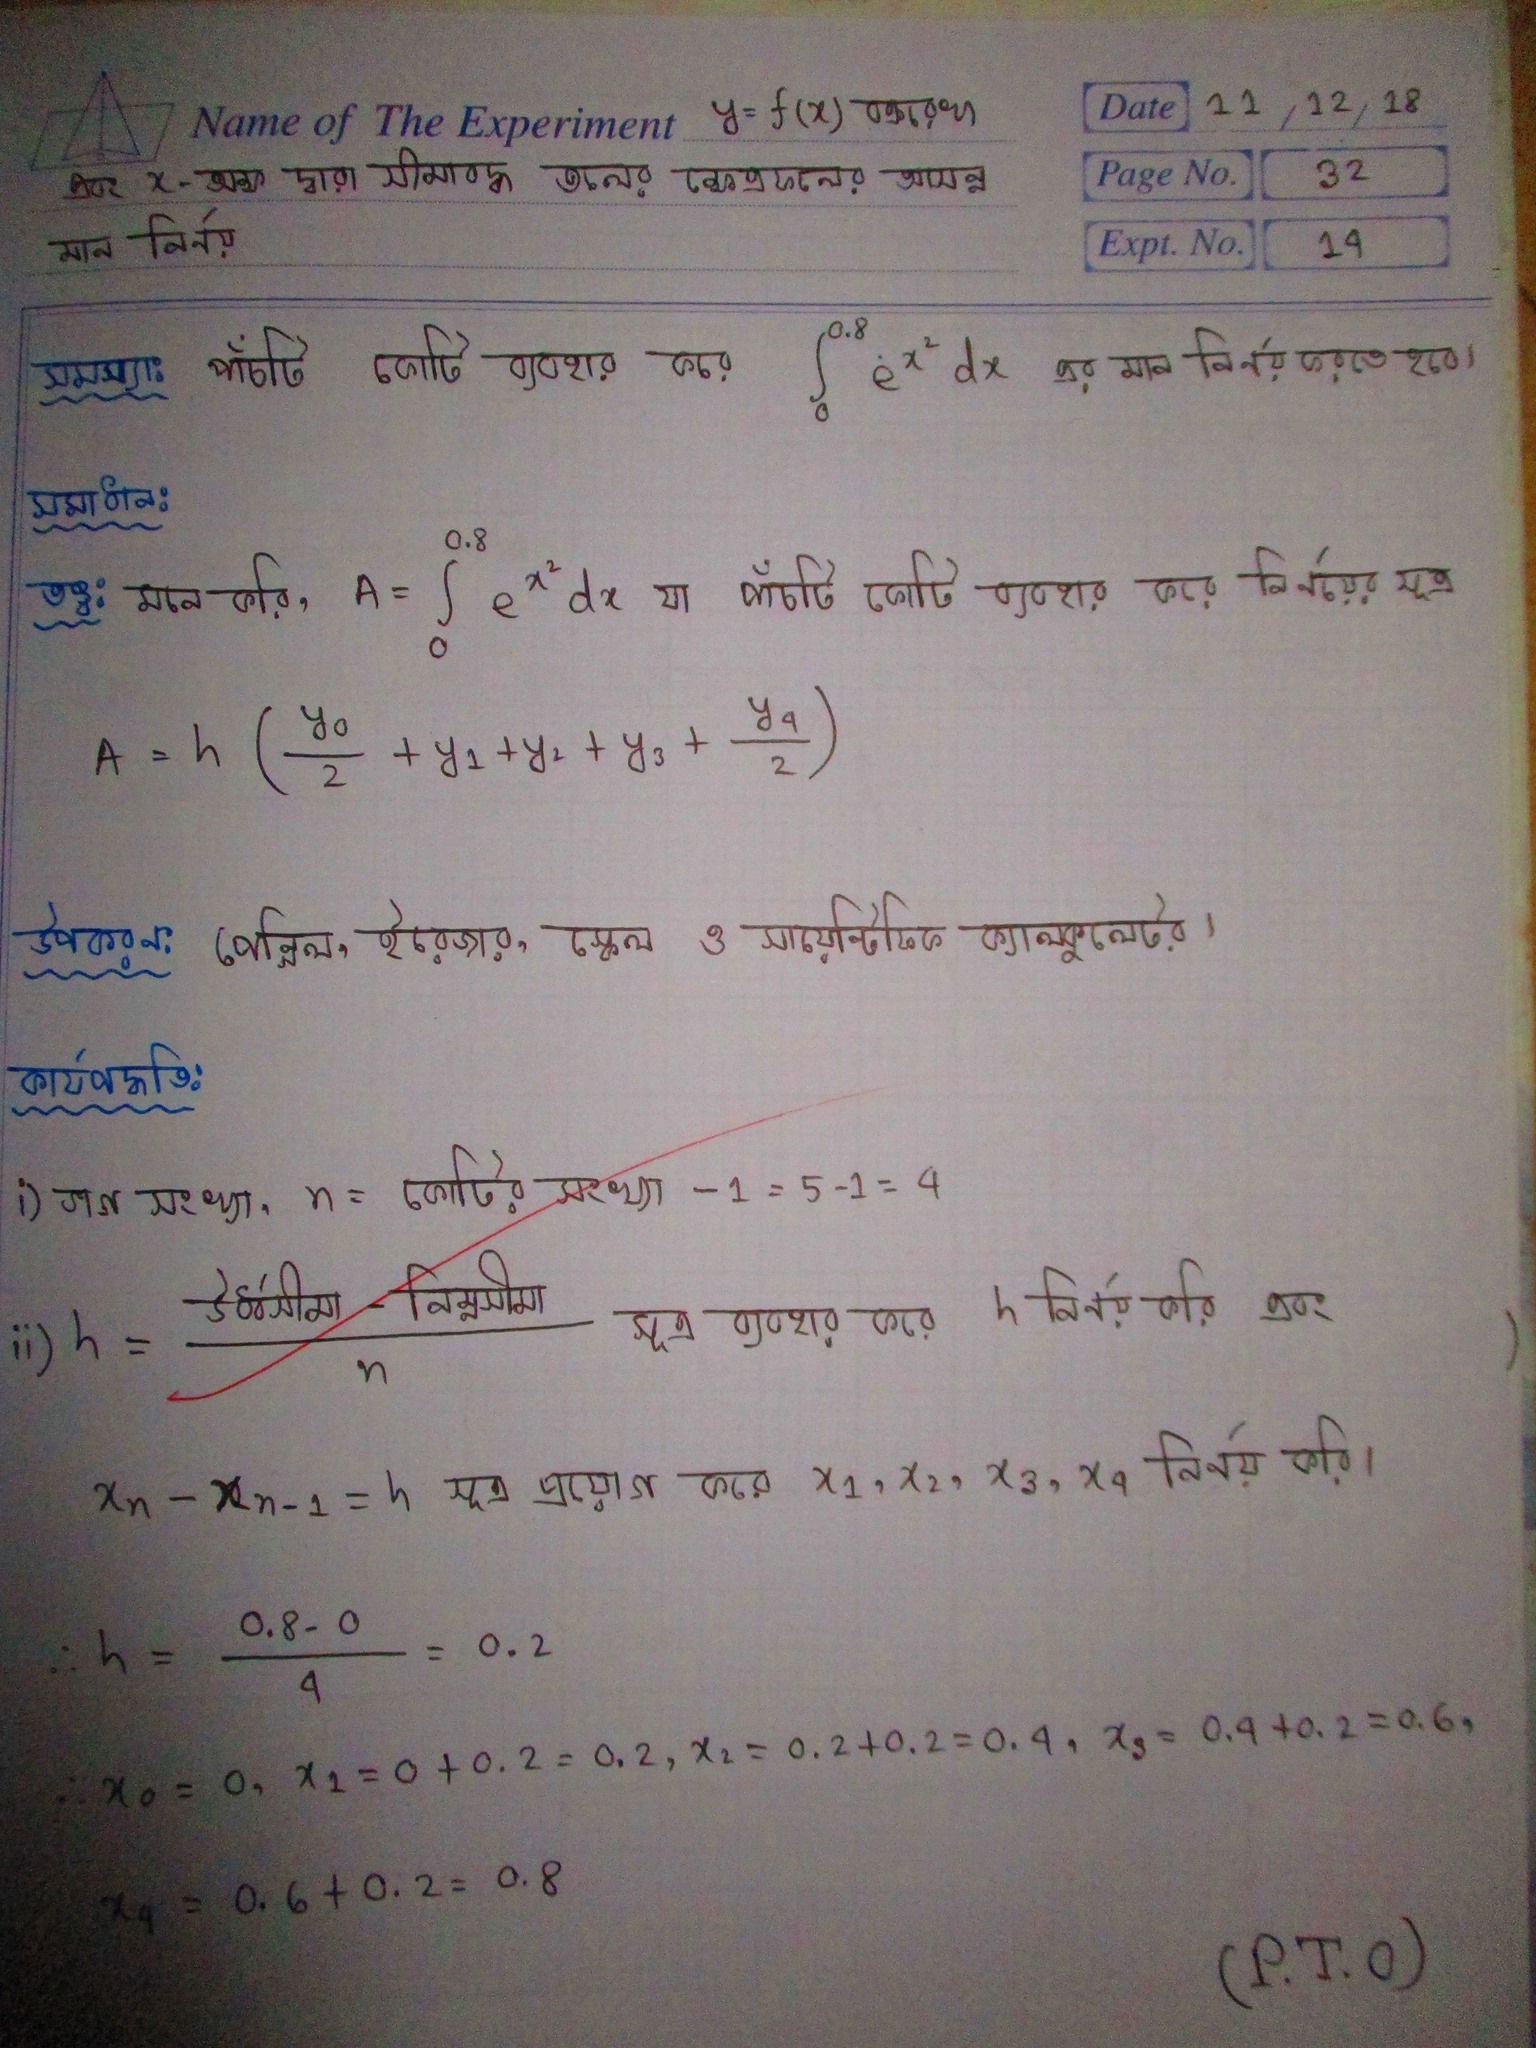 Name of The Experiment y = f(x) বক্ররেখা
এবং x-অক্ষ দ্বারা সীমাবদ্ধ তলের ক্ষেত্রফলের আসন্ন
মান নির্ণয়
Date 11/12/18
Page No. 32
Expt. No. 14
সমস্যাঃ পাঁচটি কোটি ব্যবহার করে ∫₀^0.8 e^x² dx এর মান নির্ণয় করতে হবে।
সমাধানঃ
তত্ত্বঃ মনে করি, A = ∫₀^0.8 e^x² dx যা পাঁচটি কোটি ব্যবহার করে নির্ণয়ের সূত্র
A = h (y₀/2 + y₁ + y₂ + y₃ + y₄/2)
উপকরণঃ পেন্সিল, ইরেজার, স্কেল ও সায়েন্টিফিক ক্যালকুলেটর।
কার্যপদ্ধতিঃ
i) ভাগ সংখ্যা, n = কোটির সংখ্যা - 1 = 5-1 = 4
ii) h = (উর্ধ্বসীমা - নিম্নসীমা)/n সূত্র ব্যবহার করে h নির্ণয় করি এবং
xₙ - xₙ₋₁ = h সূত্র প্রয়োগ করে x₁, x₂, x₃, x₄ নির্ণয় করি।
∴ h = (0.8 - 0)/4 = 0.2
∴ x₀ = 0, x₁ = 0 + 0.2 = 0.2, x₂ = 0.2+0.2 = 0.4, x₃ = 0.4+0.2 = 0.6,
x₄ = 0.6 + 0.2 = 0.8
(P.T.O)